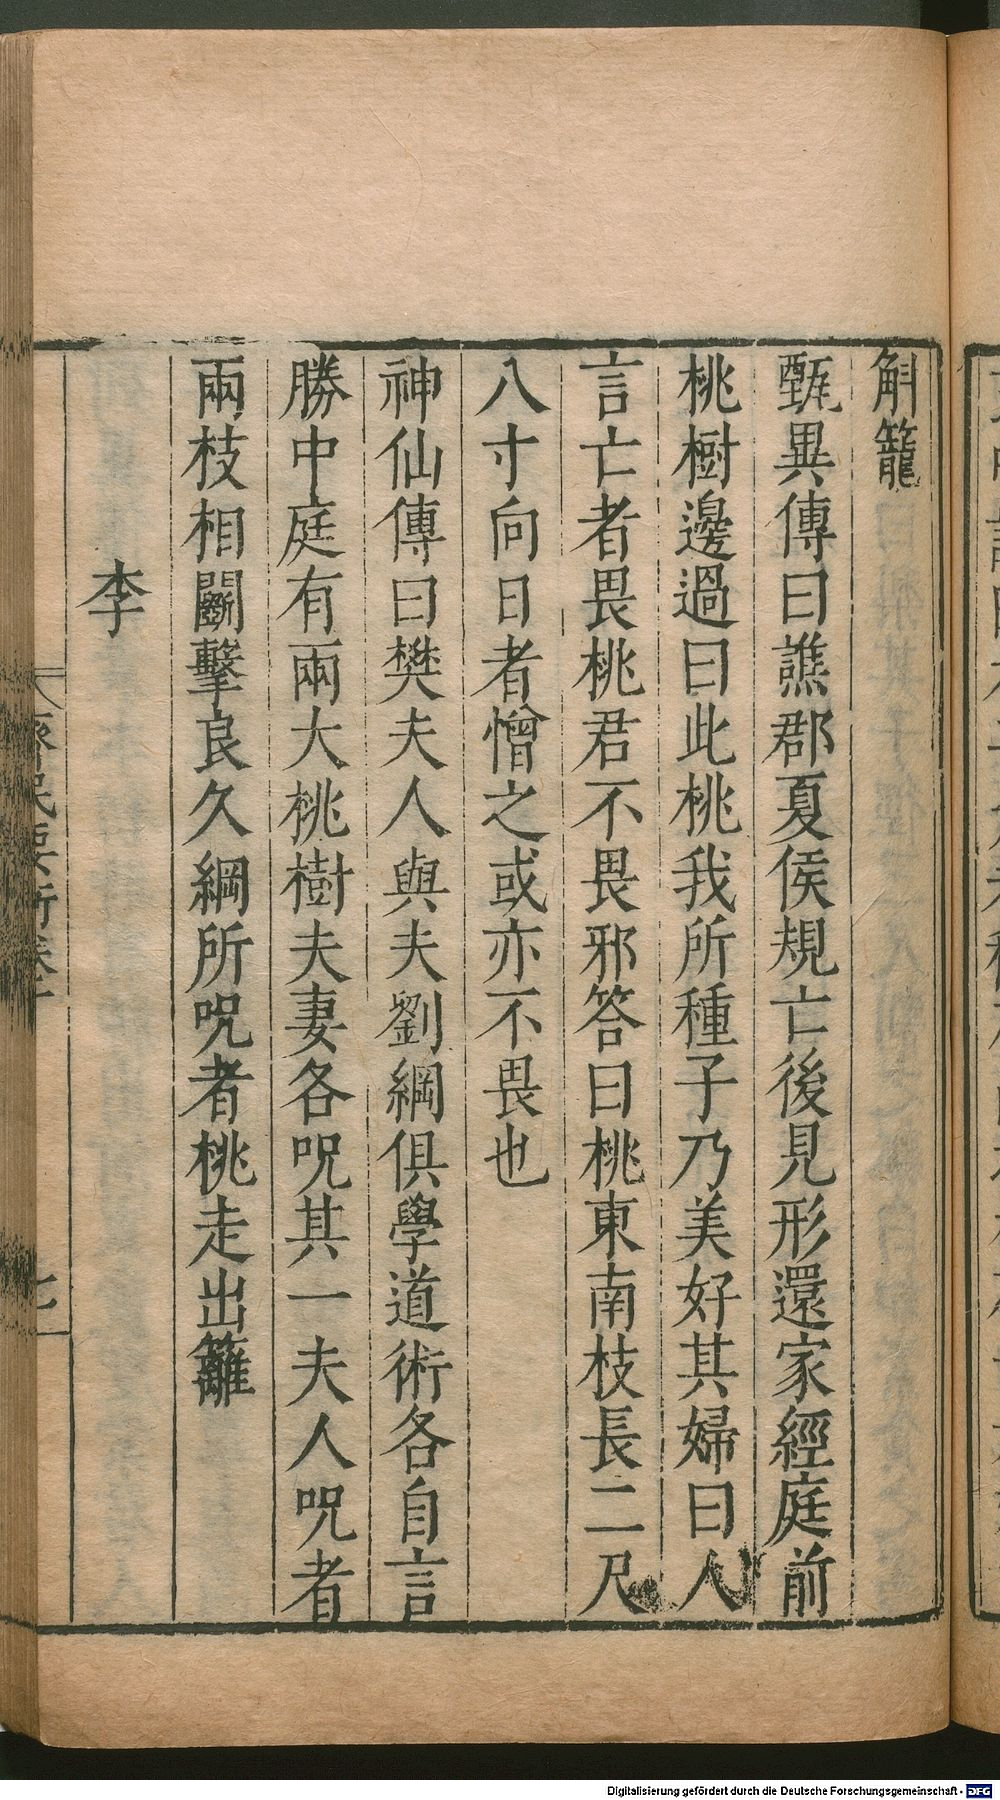 斛籠
甄異傳曰譙郡夏侯規亡後見形還家經庭前
桃樹邊過曰此桃我所種子乃美好其婦曰人
言亡者畏桃君不畏邪答曰桃東南枝長二尺
八寸向日者憎之或亦不畏也
神仙傳曰樊夫人與夫劉綱俱學道術各自言
勝中庭有兩大桃樹夫妻各呪其一夫人呪者
兩枝相鬭擊良久綱所呪者桃走出籬
李
Digitalisierung gefördert durch die Deutsche Forschungsgemeinschaft - DFG